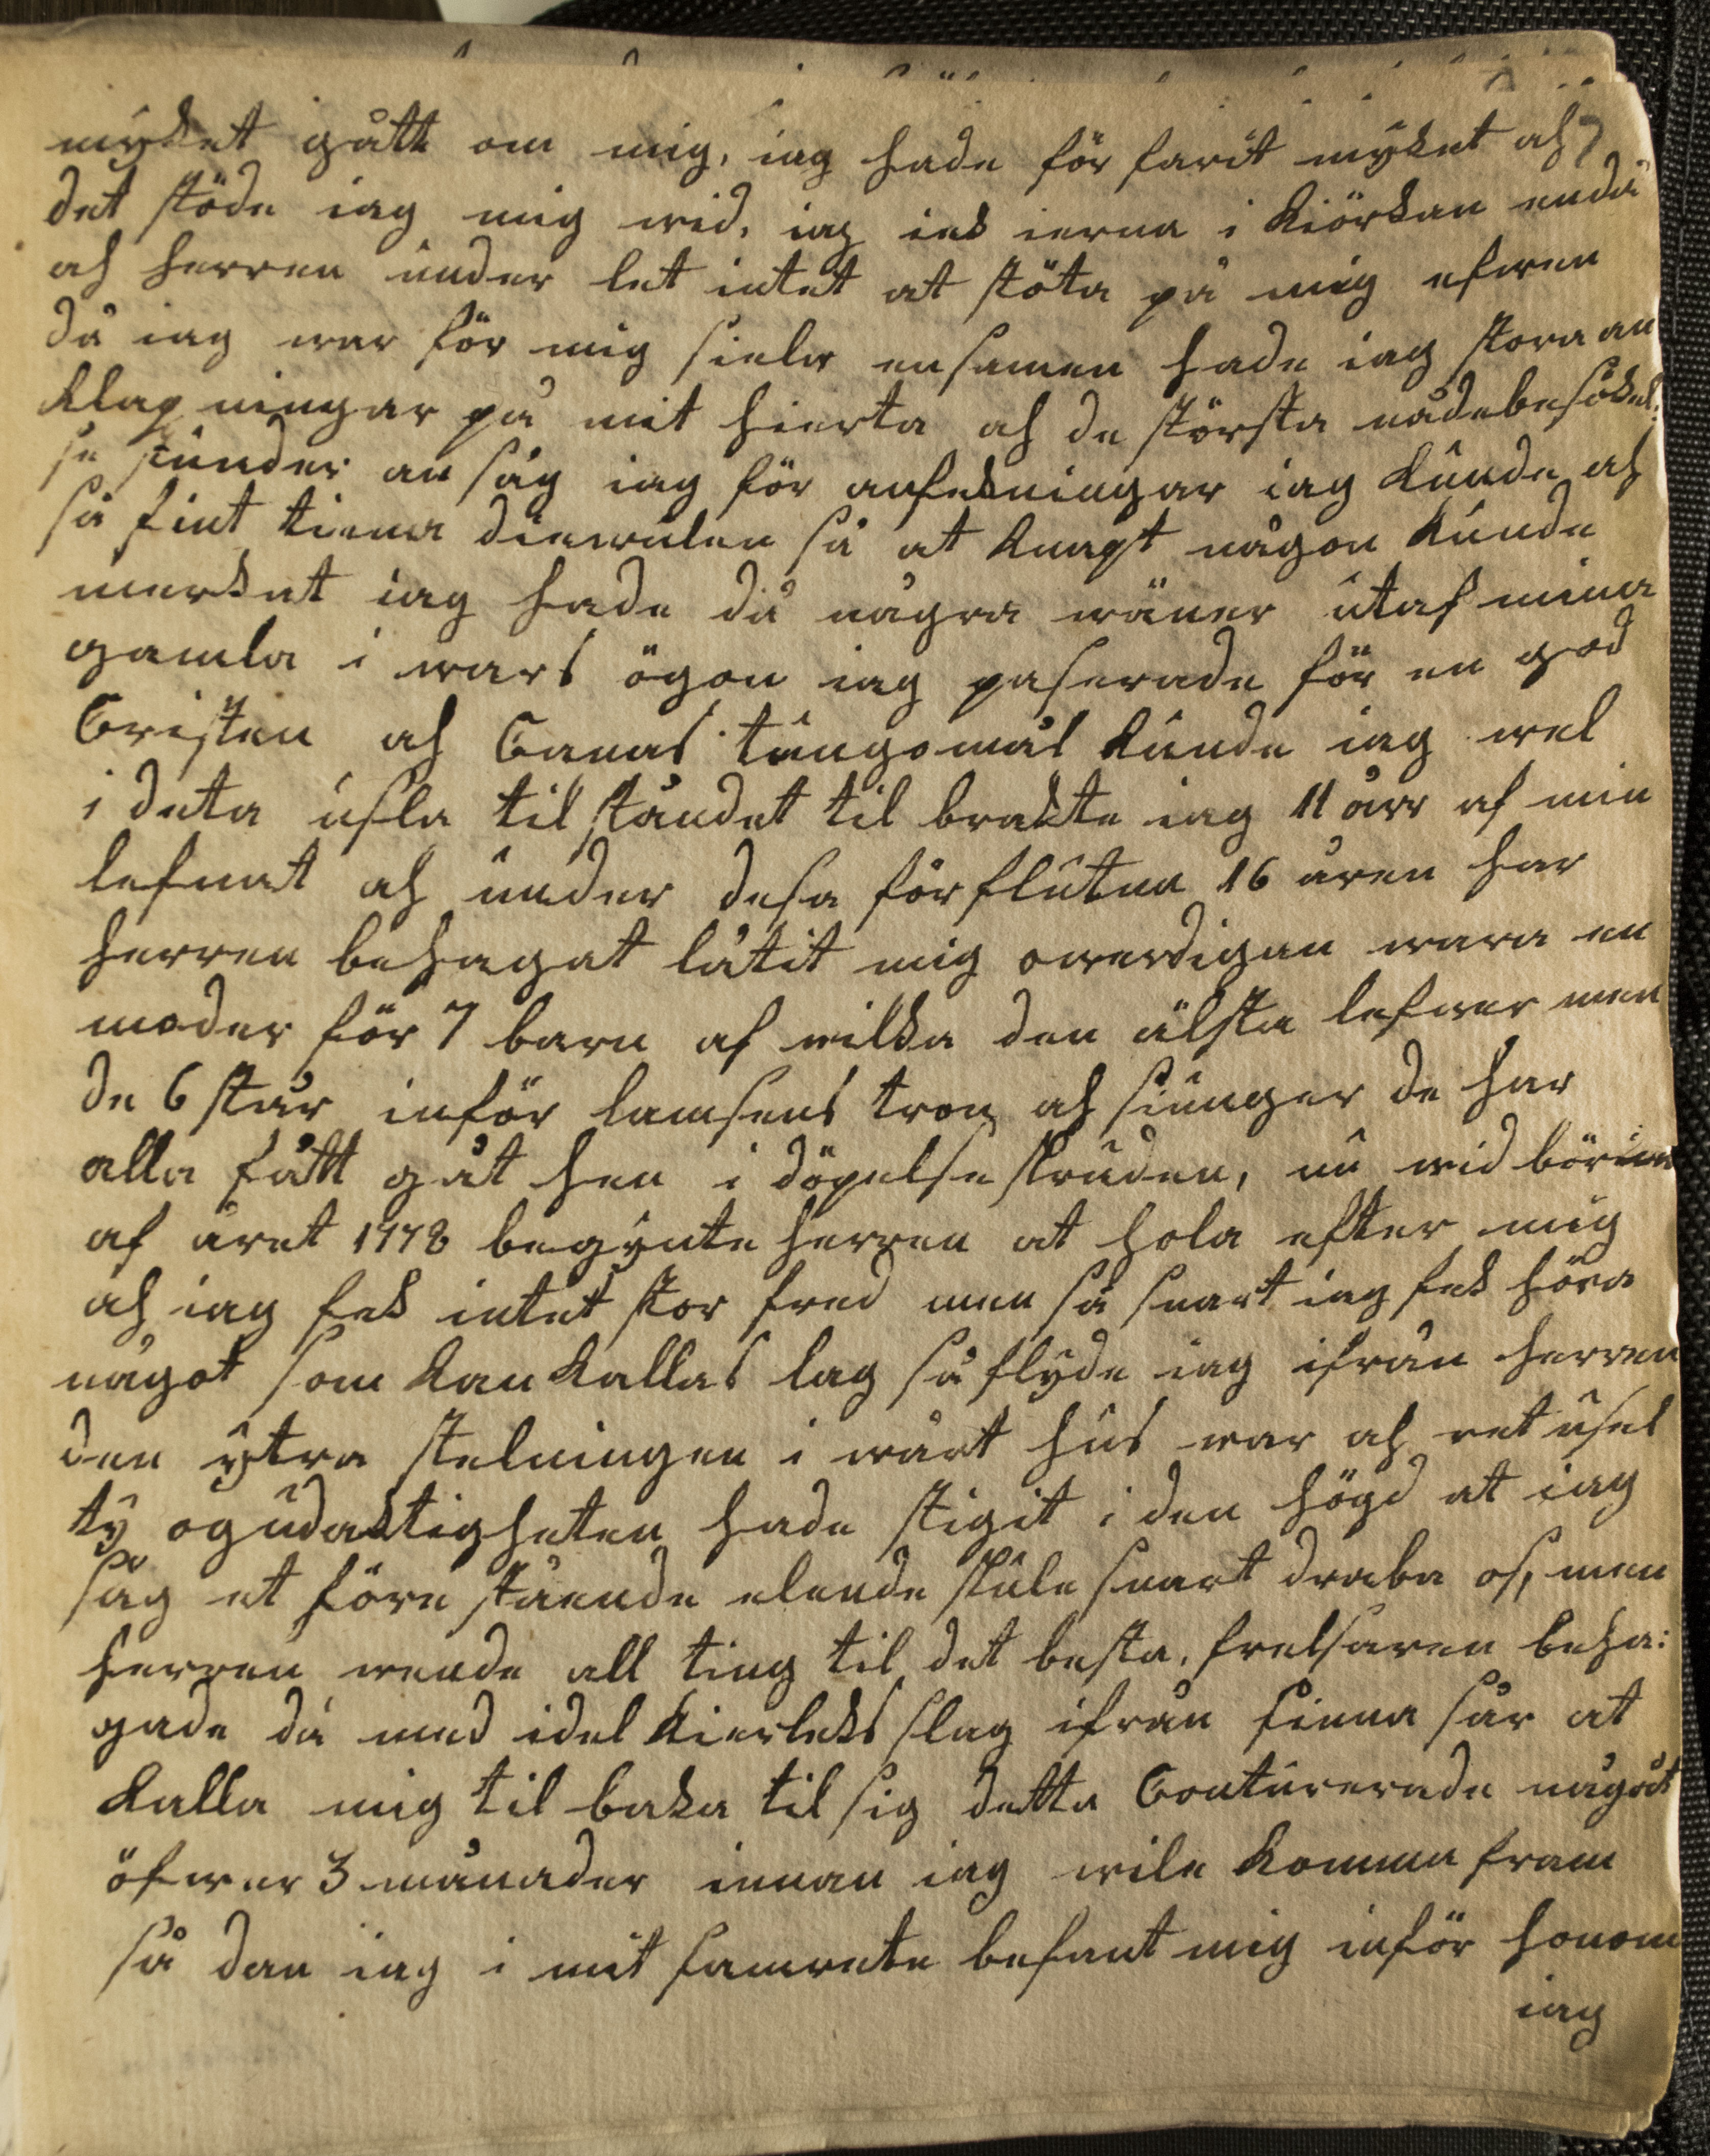 mycket gått om mig, iag hade för farit mycket ok
det stöde iag mig wid, iag iek ierna i Kiörkan enda
ok herren under let intet at stöta på mig efwen
då iag war för mig sielw ensamen hade iag stora an
klagningar på mit hierta ok de största nådebesökel:
se stunder an såg iag för anfekningar iag Kunde ok
så fint tiena diewulen så at knapt någon Kunde
merket iag hade då några wäner utaf mina
gamla i wars ögon iag paserade för en god
Cristen ok Canas tungomål Kunde iag wel
i deta usla tilståndet til brakte iag 11 åar af min
lefnat ok under desa för flutna 16 åren har
herren behagat låtit mig owerdigan wara en
moder för 7 barn af wilka den älsta lefwer men
de 6 står inför lamsens tron ok siunger de har
alla fått gåt hen i döpelse skruden, nu wid börian
af året 1778 begynte herren at hola efter mig
ok iag fek intet stor fred men så snart iag fek höra
något som kan kallas lag så flyde iag ifrån herren
den ytra stelningen i wårt hus war ok ret usel
ty ogudaktigheten hade stigit i den högd at iag
såg et före stående elende skule snart draba os, men
herren wende all ting til det besta, frelsaren beha:
gade då med idel Kierleks slag ifrån sinna sår at
Kalla mig til baka til sig detta Contuererade något
öfwer 3 månader innan iag wile Komma fram
så dan iag i mit samwete befant mig inför honom
iag